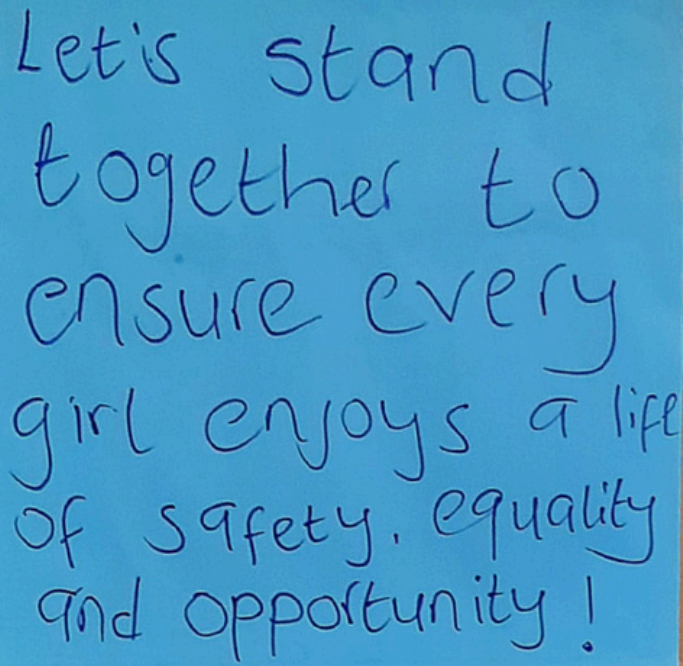 Let's stand
together to
ensure every
girl enjoys a life
of safety. equality
and opportunity!